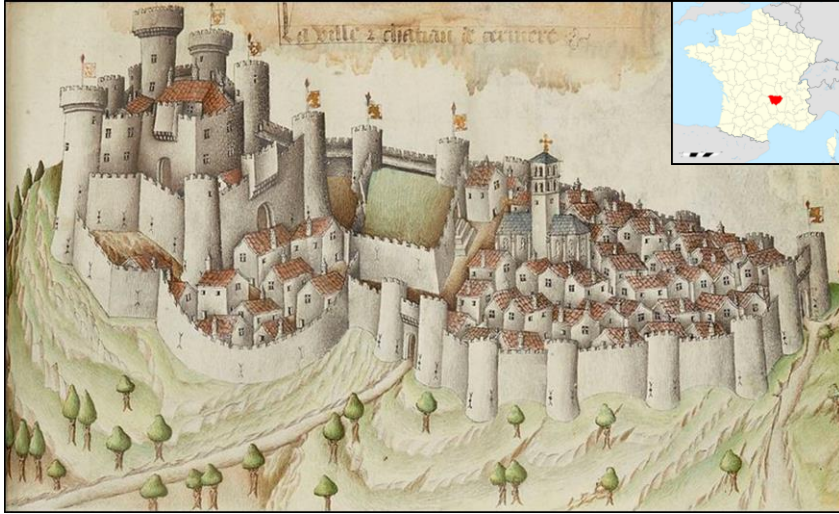 La ville & chastiau de cermere